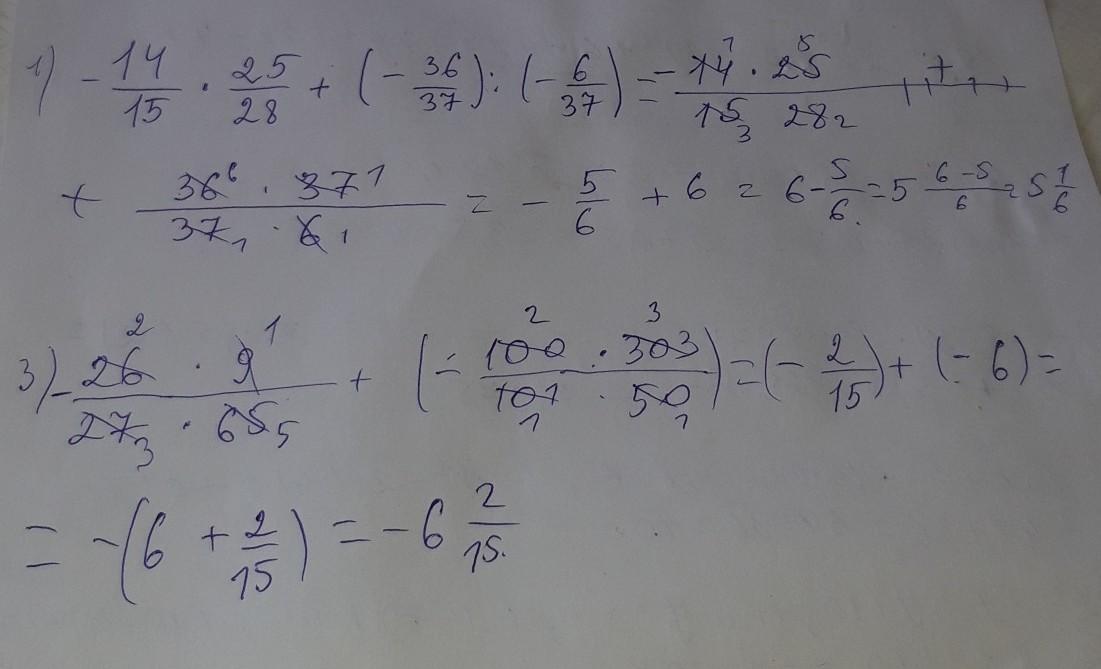 1) - 14/15 · 25/28 + (- 36/37) : (- 6/37) = - 14 1 · 25 5 / 15 3 28 2 +
+ 36 6 · 37 1 / 37 1 · 6 1 = - 5/6 + 6 = 6 - 5/6 = 5 6-5/6 = 5 1/6
3) - 26 2 · 9 1 / 27 3 · 65 5 + (- 100 2 · 303 3 / 101 1 · 50 1) = (- 2/15) + (- 6) =
= - (6 + 2/15) = - 6 2/15.